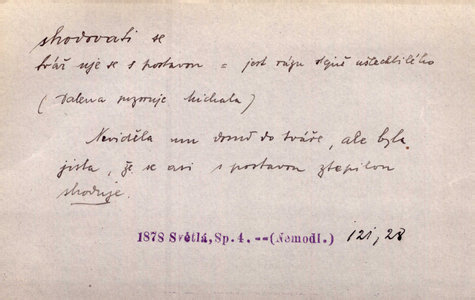 shodovati se
tvář uje se s postavou = jest rázu stejně ušlechtilého
(Dalena pozoruje Michala)
Neviděla mu dosud do tváře, ale byla
jista, že se asi s postavou ztepilou
shoduje.
1878 Světlá, Sp. 4. -- (Nemodl.) 121, 28